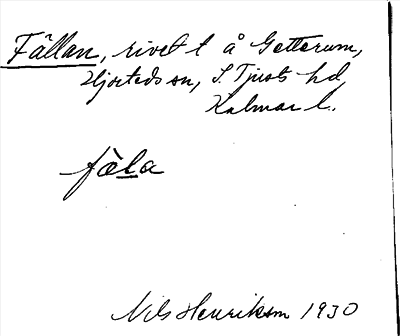 Fällan, rivet t å Getterum,
Hjorteds sn, S. Tjusts hd,
Kalmar l.
fàla
Nils Henrikson 1930